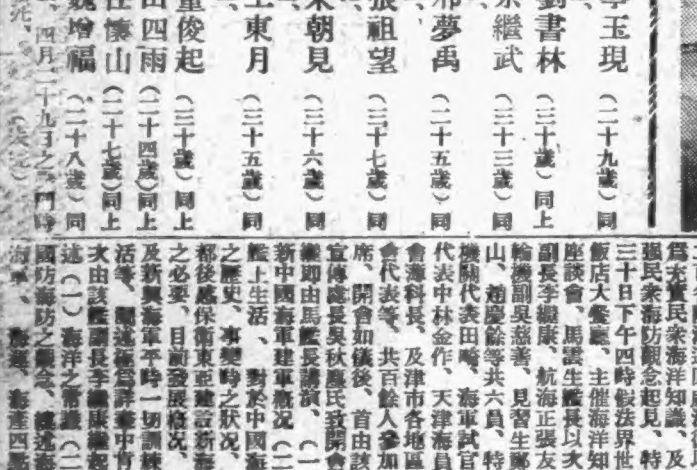 玉現(二十九歲)
劉書林(三十歲)同上
繼武(三十三歲)同
夢禹(二十五歲)同
張祖望(三十七歲)同
朝見(三十六歲)同
東月(三十五歲)同
俊起(三十歲)同上
四雨(二十四歲)同上
懷山(二十七歲)同上
魏增福(二十八歲)同
四月二十九日之
爲充實民衆海洋知識、及
强民衆海防觀念起見、特
三十日下午四時假法界世
飯店大餐廳、主催海洋知
座談會、馬雲生艦長以次
副長李繼康、航海正張友
輪機副吳慈善、見習生鄒
山、趙慶餘等共六員、特
機關代表田崎、海軍試官
代表中林金作、天津海員
會海科長、及津市各地區
會代表等、共百餘人參加
席、開會如儀後、首由該
宣傳處長吳秋塵氏致開會
繼即由馬艦長講演、(一
新中國海軍建軍概况(二
艦上生活、對於中國海
之歷史、事變時之狀况、
都後感保衛東亞建設新海
之必要、目前發展概况、
及新興海軍平時一切訓練
活等、闡述極爲詳彙中肯
次由該艦副長李繼康繼起
述(一)海洋之常識(二
國防海防之觀念、
海軍、海產四點